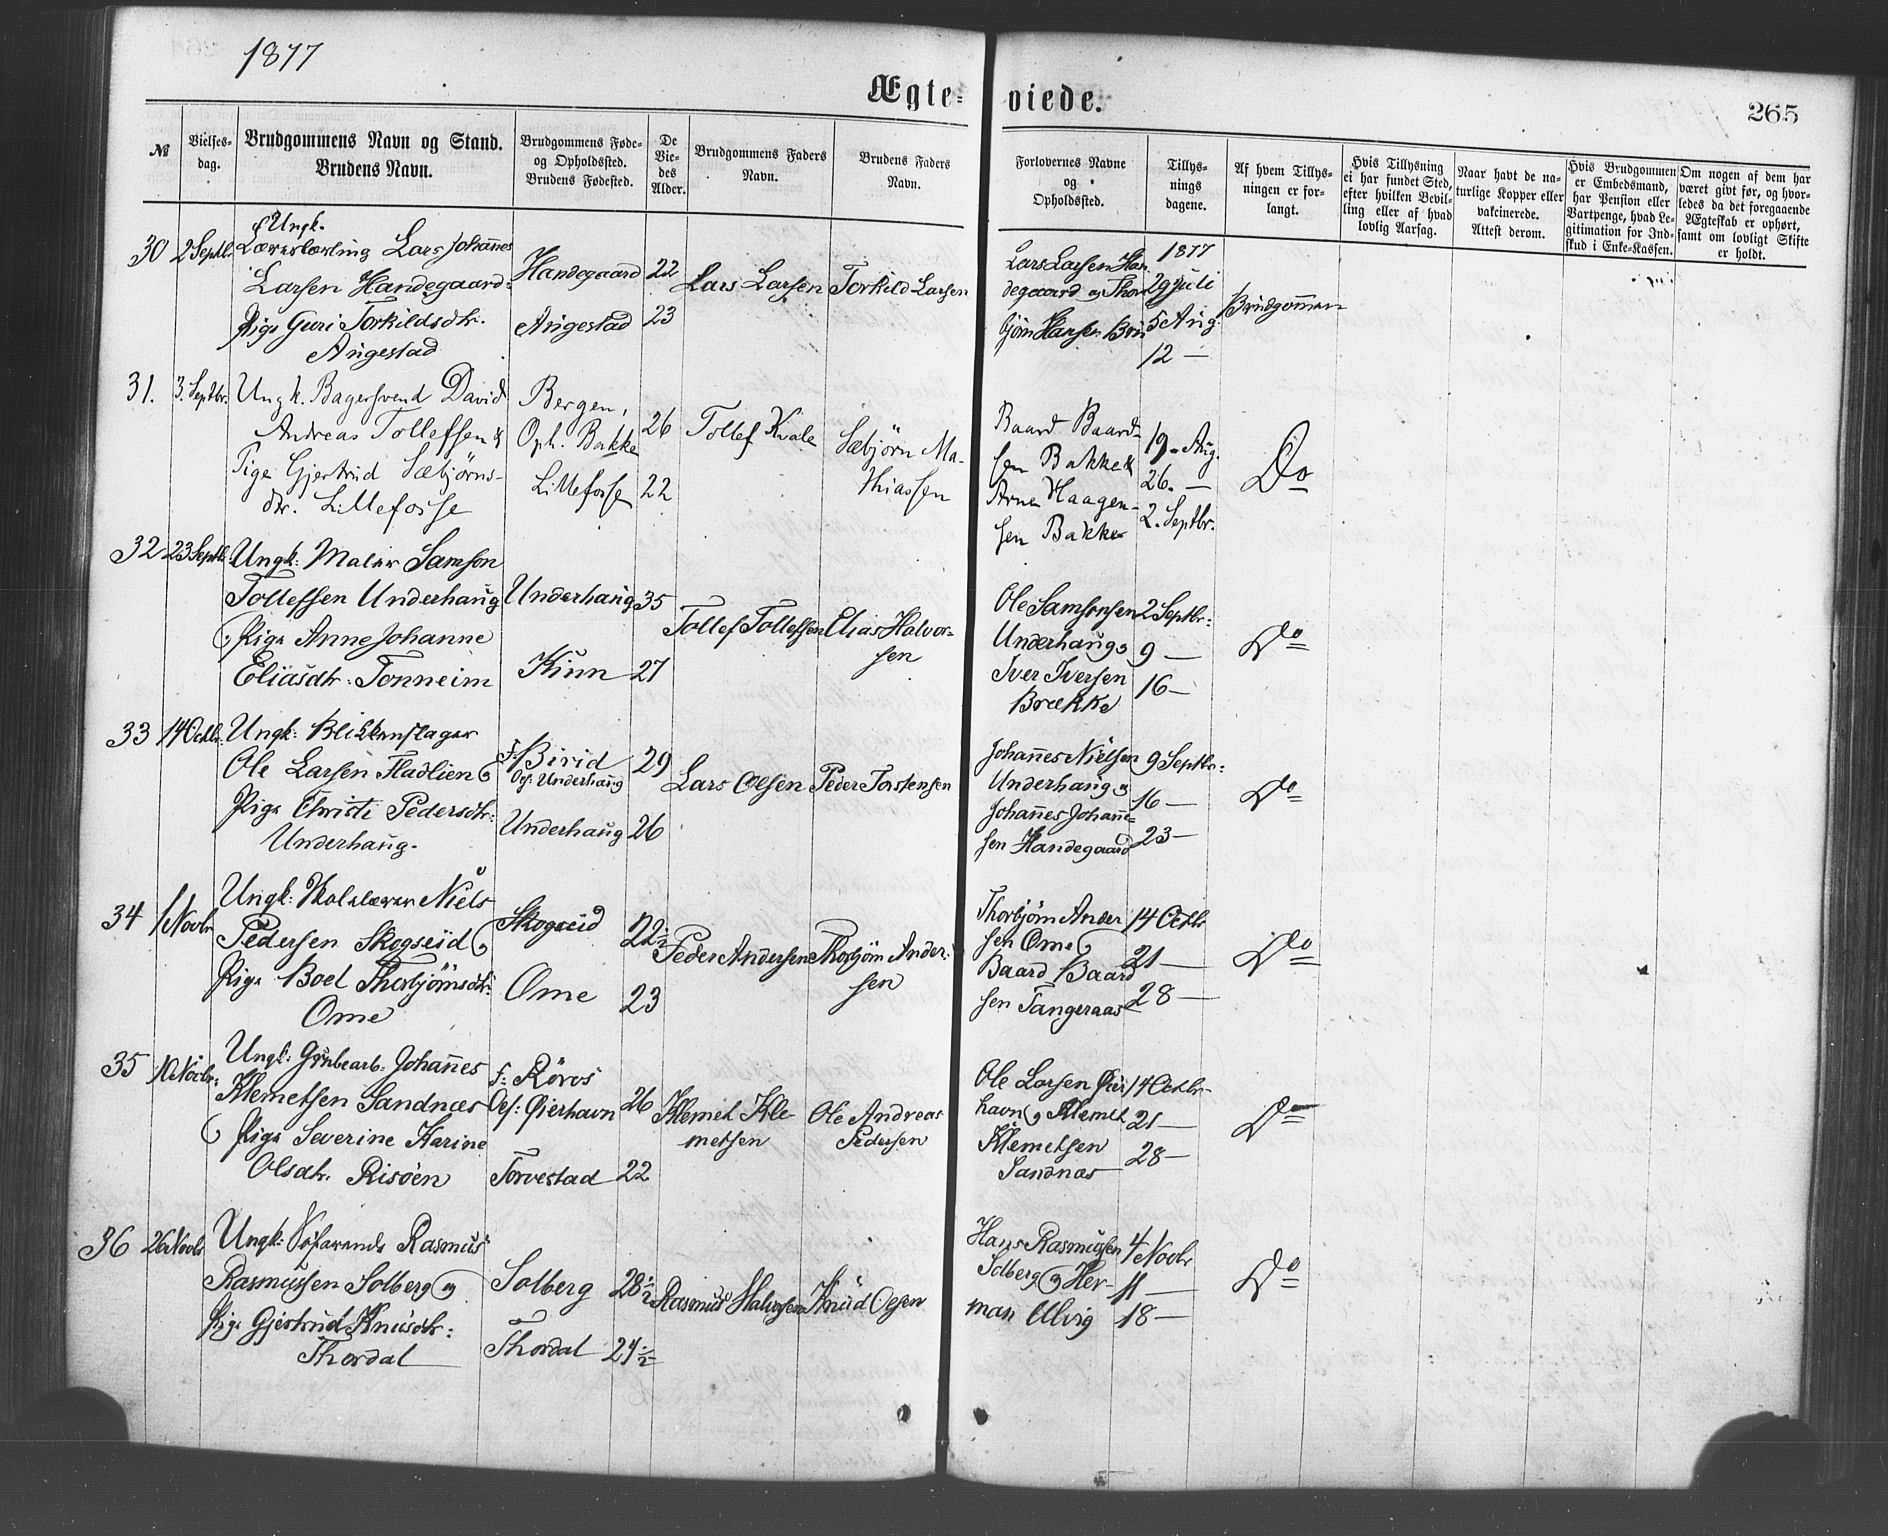 1877
Ægte-viede.
265
№
Vielses-dag.
Brudgommens Navn og Stand.
Brudens Navn.
Brudgommens Føde-
og Opholdssted.
Brudens Fødested.
De
Vie-
des
Alder.
Brudgommens Faders
Navn.
Brudens Faders
Navn.
Forlovernes Navne
og
Opholdssted.
Tillys-
nings
dagene.
Af hvem Tillys-
ningen er for-
langt.
Hvis Tillysning
ei har fundet Sted,
efter hvilken Bevil-
ling eller af hvad
lovlig Aarsag.
Naar havt de na-
turlige Kopper eller
vakcinerede.
Attest derom.
Hvis Brudgommen
er Embedsmand,
har Pension eller
Vartpenge, hvad Le-
gitimation for Ind-
skud i Enke-Kassen.
Om nogen af dem har
været givt før, og hvor-
ledes da det foregaaende
Ægteskab er ophørt,
samt om lovligt Skifte
er holdt.
30 2 Septbr.
Ungk.
Lærerlærling Lars Johannes
Larsen Handegaard
Pige Guri Torkildsdtr.
Angestad
Handegaard 22
Angestad 23
Lars Larsen
Torkild Larsen
Lars Larsen Han
degaard og Thor
bjørn Hansen
1877
29 Juli
5 Aug.
12 —
Brudgommen
31. 3. Septbr.
Ungk. Bagersvend David
Andreas Tollefsen &
Pige Gjertrud Sæbjørns-
dtr. Lillefosse
Bergen,
Oph. Bakke 26
Lillefosse 22
Tollef Kvale
Sæbjørn Ma-
thiassen
Baard Baard-
sen Bakke &
Arne Haagen-
sen Bakke
19. Aug.
26. —
2. Septbr.
Do
32 23 Septbr.
Ungk: Maler Samson
Tollefsen Underhaug
og Pige Anne Johanne
Eliasdtr. Tonneim
Underhaug 35
Kinn 27
Tollef Tollefsen
Elias Halvor-
sen
Ole Samsonsen
Underhaug og
Iver Iversen
Brække
2 Septbr:
9 —
16 —
Do
33 14 Octbr:
Ungk: Blikkenslager
Ole Larsen Fladlien og
Pige Christi Pedersdtr:
Underhaug.
F: Birid 29
Op: Underhaug
Underhaug 26
Lars Olsen
Peder Torstensen
Johannes Nielsen
Underhaug og
Johannes Johanne-
sen Handegaard
9 Septbr:
16 —
23 —
Do
34 1 Novbr
Ungk: Skolelærer Niels
Pedersen Skogseid og
Pige Boel Thorbjørnsdtr:
Ome
Skogseid 22½
Ome 23
Peder Andersen
Thorbjørn Ander-
sen
Thorbjørn Ander
sen Ome og
Baard Baard
sen Tangeraas
14 Octbr
21 —
28 —
Do
35 10 Novbr:
Ungk: Grubearb: Johannes
Klemetsen Sandnæs
og Pige Severine Karine
Olsdtr. Risöen
F: Röros
Op: Øierhavn 26
Torvestad 22
Klemet Kle-
metsen
Ole Andreas
Pedersen
Ole Larsen Øier
havn og Klemet
Klemetsen
Sandnæs
14 Octbr
21 —
28 —
Do
36 26 Novbr
Ungk: Söfarende Rasmus
Rasmussen Solberg og
Pige Gjertrud Knudsdtr:
Thordal
Solberg 28½
Thordal 24½
Rasmus Halvorsen
Knud Olsen
Hans Rasmussen
Solberg og Her-
man Ulvig
4 Novbr
11 —
18 —
Do